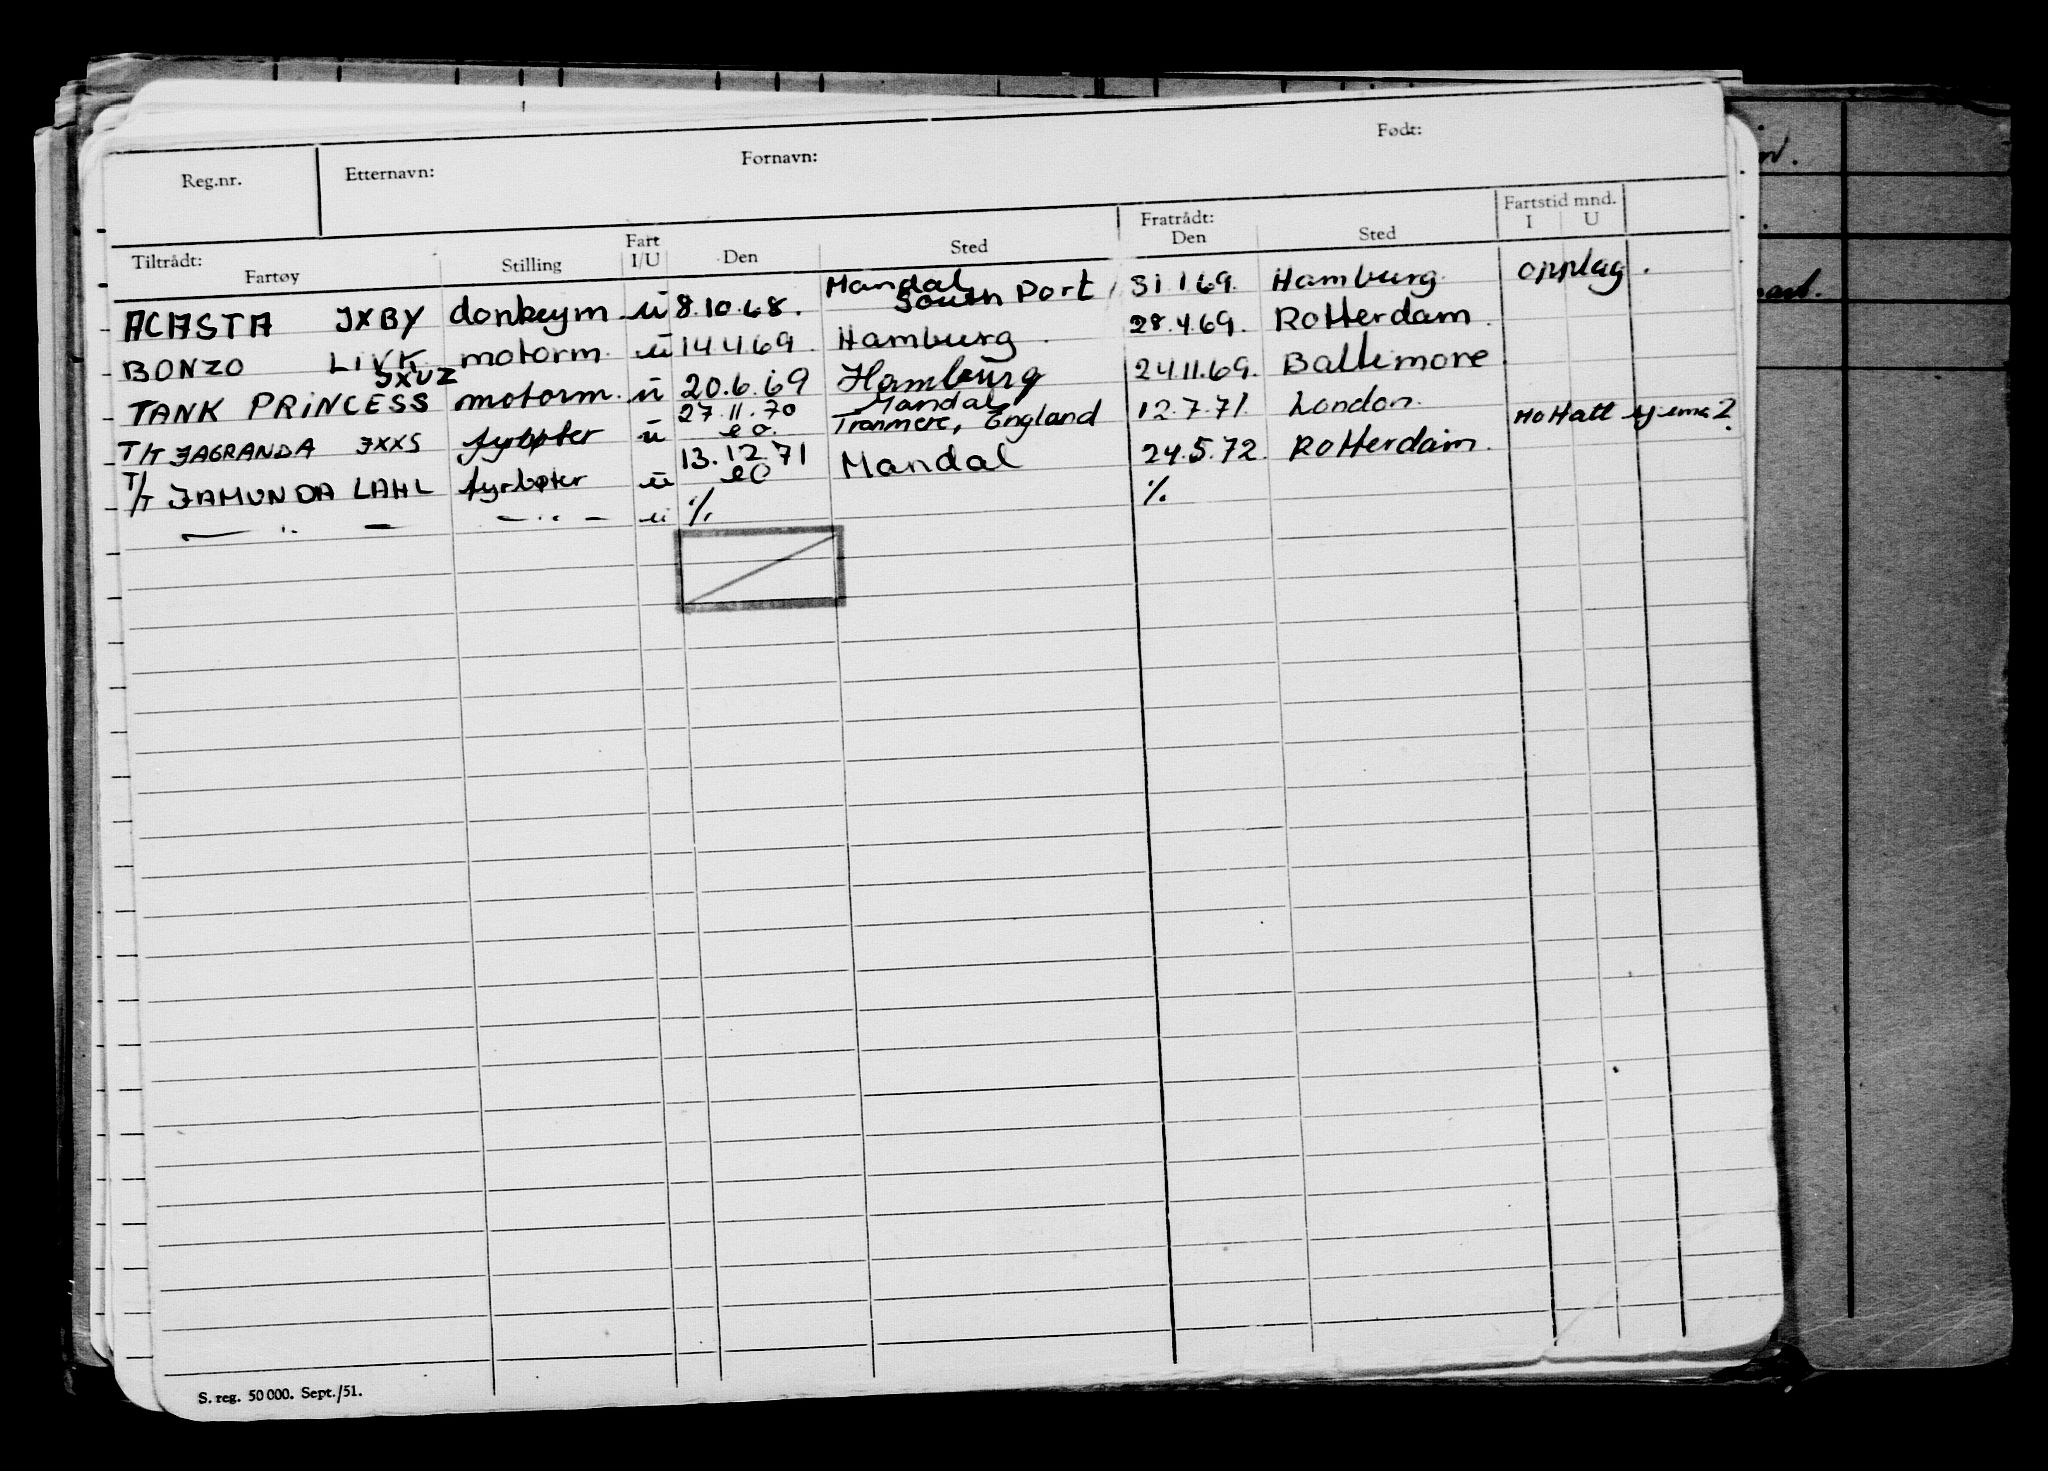 Reg.nr. Etternavn: Fornavn: Født:
Tiltrådt: Fartøy Stilling Fart I/U Den Sted Fratrådt: Den Sted Fartstid mnd. I U
ACASTA JXBY donkeym ü 8.10.68. Mandal South Port 31 1 69. Hamburg opplag.
BONZO LIVK motorm. ü 14 4 69. Hamburg. 28.4.69. Rotterdam.
TANK PRINCESS JXUZ motorm. ü 20.6.69 Hamburg 24.11.69. Baltimore.
T/T JAGRANDA JXXS fyrbøter ü 27.11.70 eo. Mandal Tranmere, England 12.7.71. London. Mottatt
T/T JAMUNDA LAHL fyrbøter ü 13.12.71 eo Mandal 24.5.72. Rotterdam.
— ·· — — ·· — ü ·/. ·/.
S. reg. 50 000. Sept./51.